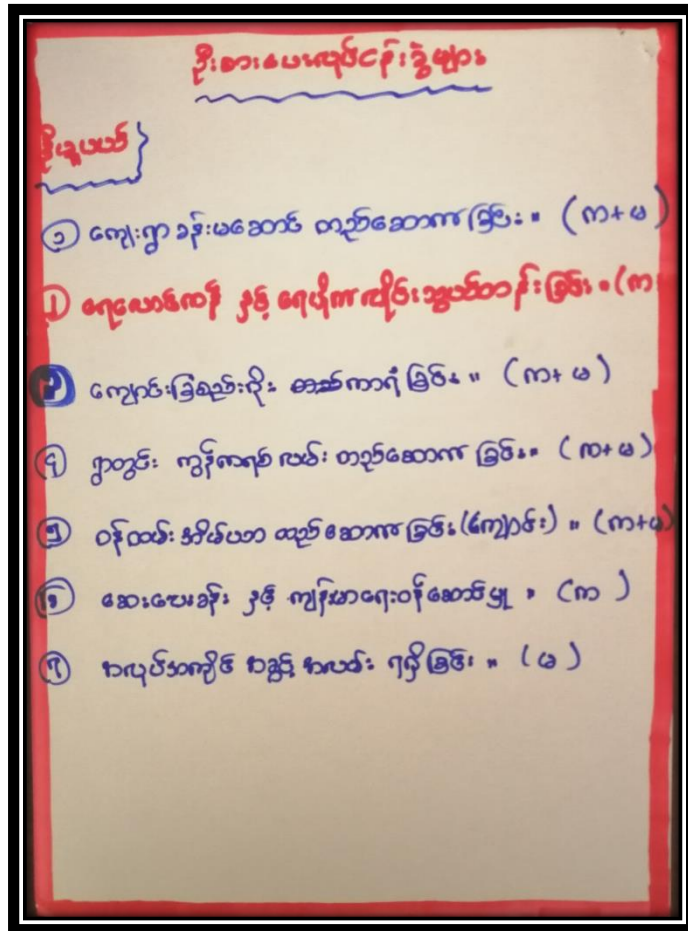 ဦးစားပေးလုပ်ငန်းခွဲများ
ဦးယူပယ်
၁ ကျေးရွာခန်းမဆောင် တည်ဆောက်ခြင်း။ (က+မ)
၂ ရေလှောင်ကန် နှင့် ရေပိုက်လိုင်းသွယ်တန်းခြင်း။ (က
၃ ကျောင်းခြံစည်းရိုး ကာရံခြင်း။ (က+မ)
၄ ရွာတွင်း ကွန်ကရစ်လမ်း တည်ဆောက်ခြင်း။ (က+မ)
၅ ဝန်ထမ်းအိမ်ယာ တည်ဆောက်ခြင်း (ကျောင်း)။ (က+မ)
၆ ဆေးပေးခန်း နှင့် ကျန်းမာရေးဝန်ဆောင်မှု။ (က )
၇ အလုပ်အကိုင် အခွင့်အလမ်း ရရှိခြင်း။ (မ)